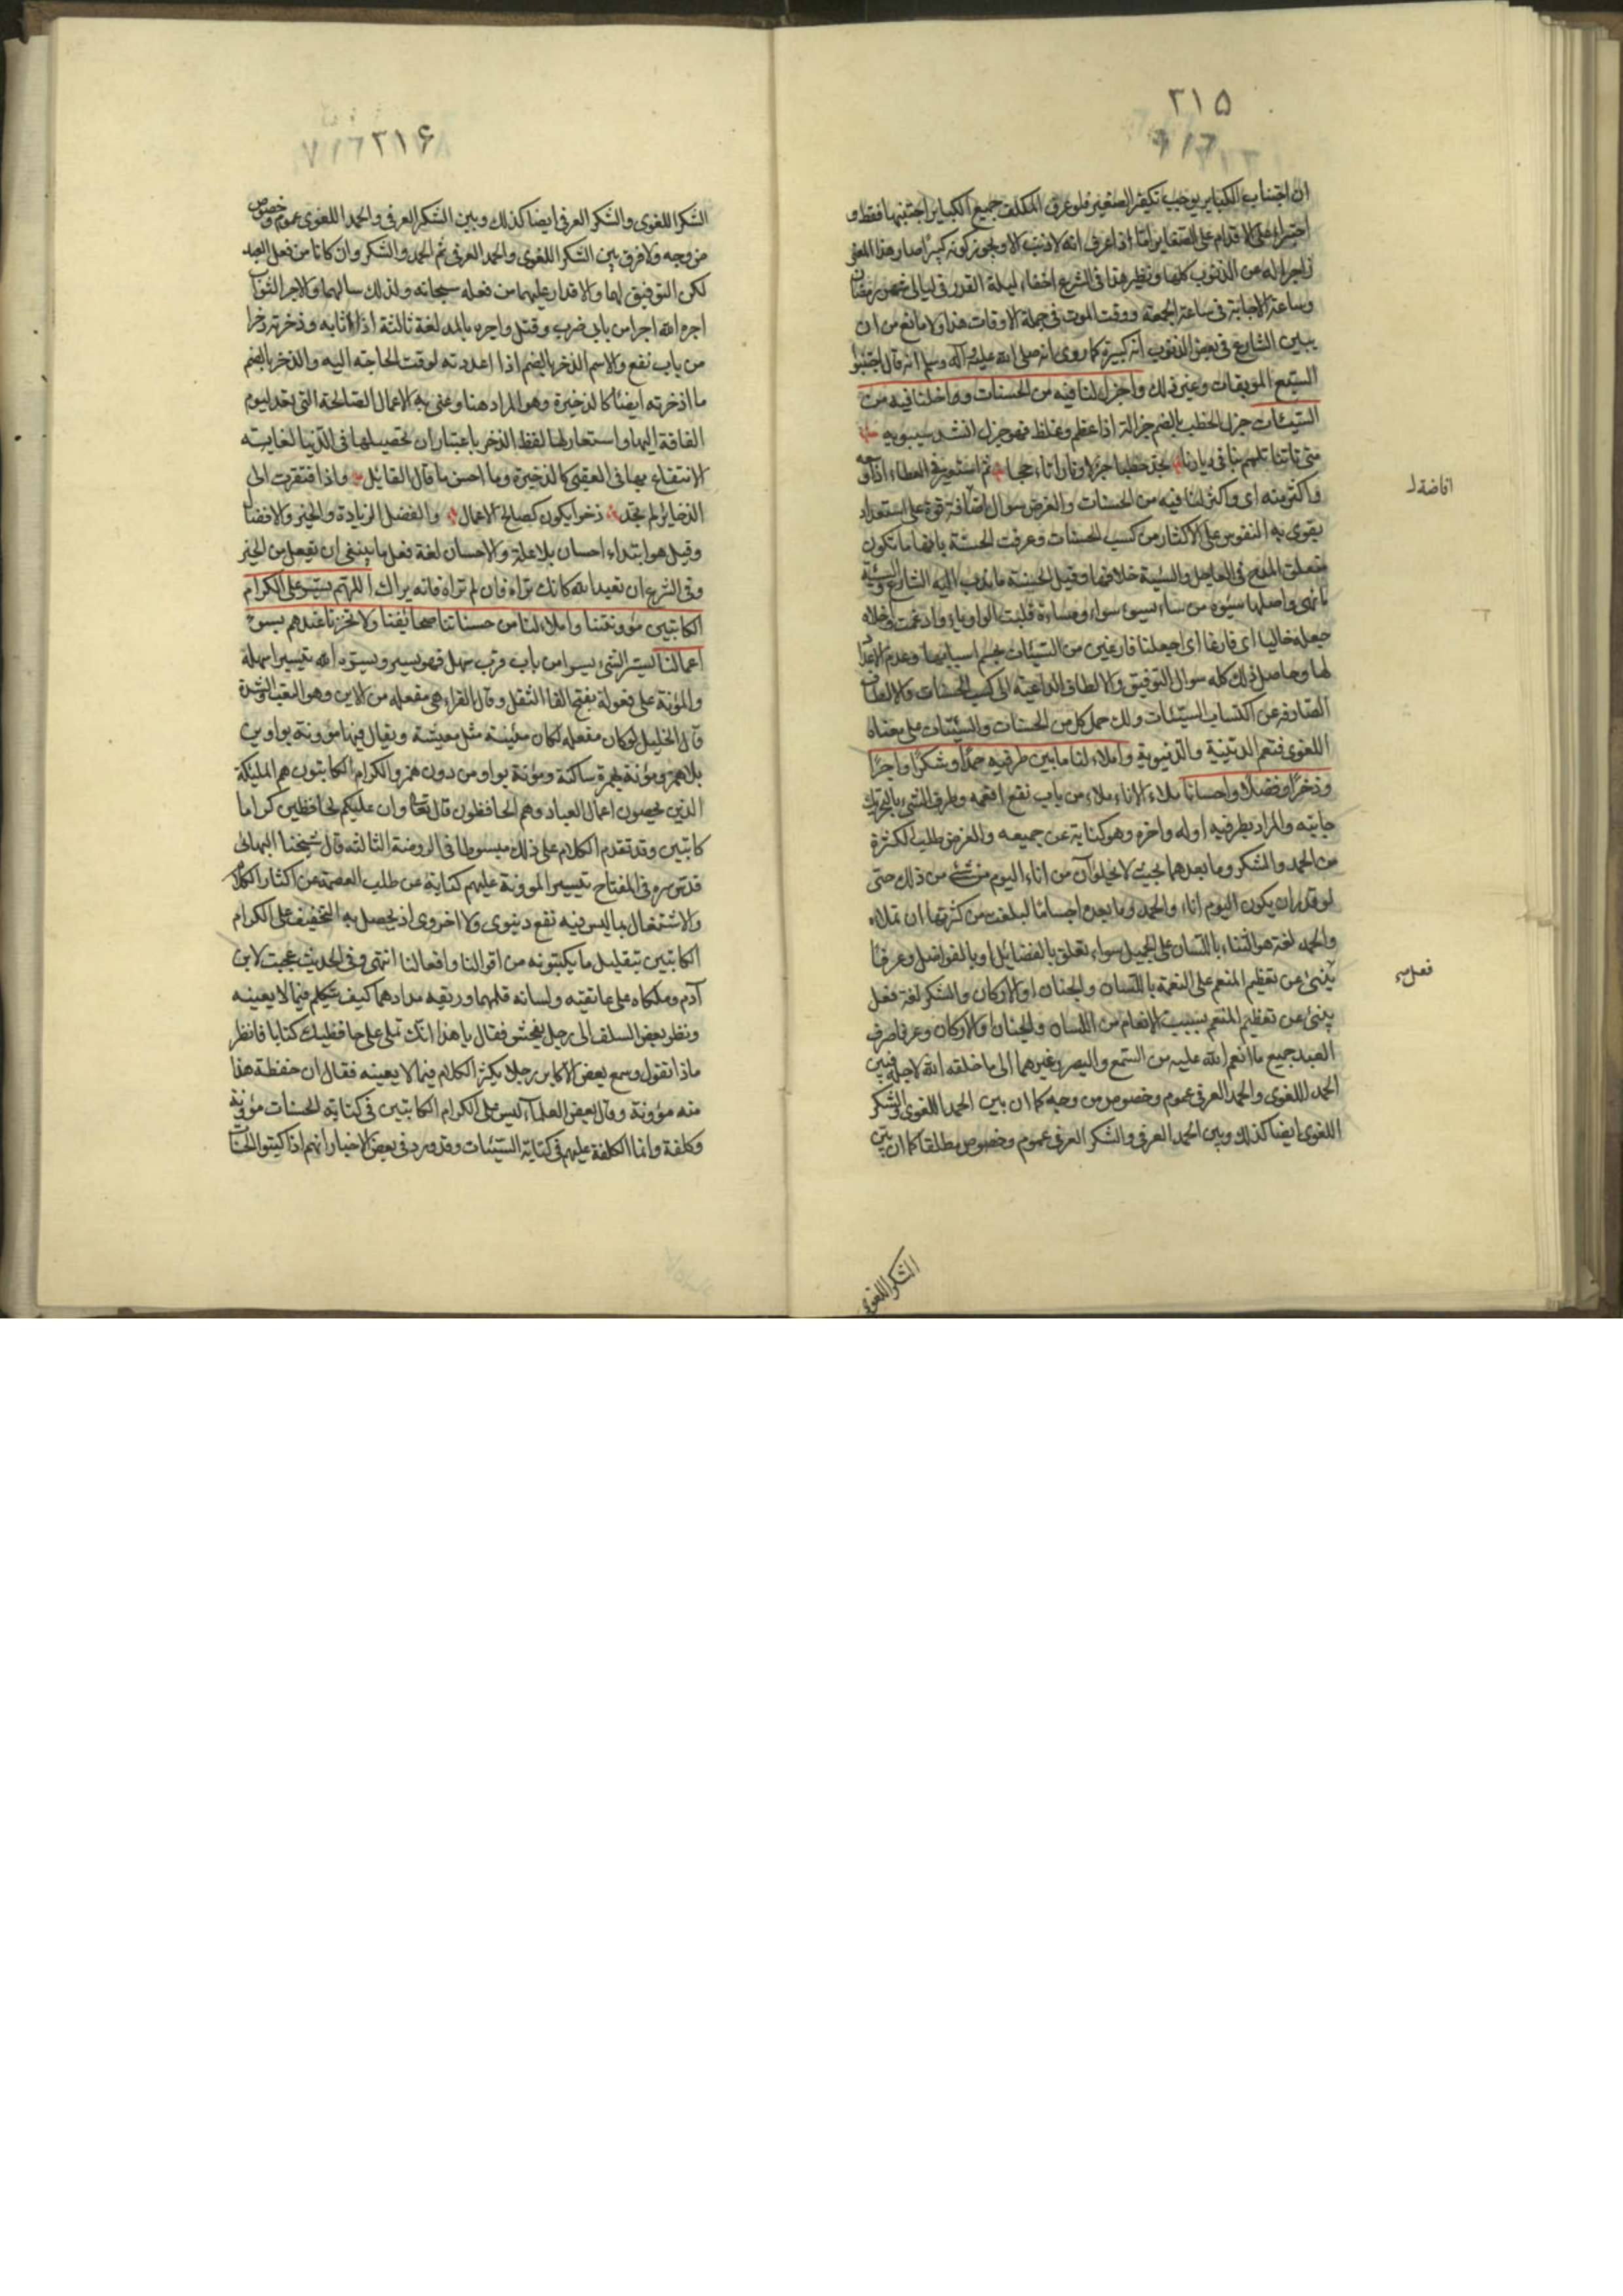 ٣١۵
ان اجتناب الكباير يوجب تكفير الصغير فلو عرف المكلف جميع الكباير اجتنبها فقط و
اجترء على الاقدام على الصغاير اما اذا عرف انه لا ذنب الا و يجوز كونه كبيرا صار هذا المعنى
زاجرا له عن الذنوب كلها ونظير هذا في الشرع اخفاء ليلة القدر في ليالي شهر رمضان
وساعة الاجابة في ساعة الجمعة ووقت الموت في جملة الاوقات هذا ولا مانع من ان
يبين الشارع في بعض الذنوب انه كبيرة كما روى انه صلى الله عليه وآله وسلم انه قال اجتنبوا
السبع الموبقات وغير ذلك واجزل لنا فيه من الحسنات واخلنا فيه من
السيئات جزل الحطب بالضم جزالة اذا عظم وغلظ فهو جزل انشد سيبويه
متى تاتنا تلمم بنا في ديارنا تجد حطبا جزلا ونارا تاججا ثم استعير في العطاء
واكثر منه اى واكثر لنا فيه من الحسنات والغرض سؤال اضافة قوة على استعداد
يقوى به النفوس على الاكثار من كسب الحسنات وعرفت الحسنة بانها ما تكون
متعلق المدح في العاجل والسيئة خلافها وقيل الحسنة ما ندب اليه الشارع والسيئة
ما نهى واصلها سيوءة من ساء يسوء سواء ومساءة قلبت الواو ياء وادغمت واخلاه
جعله خاليا اى فارغا اى اجعلنا فارغين من السيئات بحسم اسبابها وعدم الاعداد
لها وحاصل ذلك كله سؤال التوفيق والالطاف الداعية الى كسب الحسنات والالطاف
الصارفة عن اكتساب السيئات ولك حمل كل من الحسنات والسيئات على معناه
اللغوى فتعم الدينية والدنيوية واملاء لنا ما بين طرفيه حمدا وشكرا واجرا
وذخرا وفضلا واحسانا ملاء الاناء ملاء من باب نفع افعمه وطرف الشيء بالتحريك
جانبه والمراد بطرفيه اوله واخره وهو كناية عن جميعه والغرض طلب الكثرة
من الحمد والشكر وما بعدهما بحيث لا يخلو آن من اناء اليوم من شيء من ذلك حتى
لو قدر ان يكون اليوم اناء والحمد وما بعده اجساما لبلغت من كثرتها ان تملاءه
والحمد لغة هو الثناء باللسان على الجميل سواء تعلق بالفضائل او بالفواضل وعرفا
ينبئ عن تعظيم المنعم على النعمة باللسان والجنان او الاركان والشكر لغة فعل
ينبئ عن تعظيم المنعم بسبب الانعام من اللسان والجنان والاركان وعرفا صرف
العبد جميع ما انعم الله عليه من السمع والبصر وغيرهما الى ما خلقه الله لاجله فبين
الحمد اللغوى والحمد العرفي عموم وخصوص من وجه كما ان بين الحمد اللغوى والشكر
اللغوى ايضا كذلك وبين الحمد العرفي والشكر العرفي عموم وخصوص مطلقا كما ان بين
افاضة
فعل
الشكر اللغوى
٣١۶
الشكر اللغوى والشكر العرفي ايضا كذلك وبين الشكر العرفي والحمد اللغوى عموم وخصوص
من وجه ولا فرق بين الشكر اللغوى والحمد العرفي ثم الحمد والشكر وان كانا من فعل العبد
لكن التوفيق لهما والاقدار عليهما من فعله سبحانه ولذلك سالهما والاجر الثواب
اجره الله اجرا من بابي ضرب وقتل واجره بالمد لغة ثالثة اذا اثابه وذخرته ذخرا
من باب نفع والاسم الذخر بالضم اذا اعددته لوقت الحاجة اليه والذخر بالضم
ما اذخرته ايضا كالذخيرة وهو المراد هنا وعنى به الاعمال الصالحة التي تعد ليوم
الفاقة اليها واستعار لها لفظ الذخر باعتبار ان تحصيلها في الدنيا لغايته
الانتفاع بها في العقبى كالذخيرة وما احسن ما قال القايل واذا افتقرت الى
الذخاير لم تجد ذخرا يكون كصالح الاعمال والفضل الزيادة والخير والافضال
وقيل هو ابتداء احسان بلا علة والاحسان لغة فعل ما ينبغي ان تفعل من الخير
وفي الشرع ان تعبد الله كانك تراه فان لم تراه فانه يراك اللهم يسر على الكرام
الكاتبين مؤونتنا واملاء لنا من حسناتنا صحايفنا ولا تخزنا عندهم بسوء
اعمالنا يسر الشيء يسرا من باب قرب سهل فهو يسير ويسره الله تيسيرا سهله
والمؤنة على فعولة بفتح الفاء الثقل وقال الفراء هي مفعلة من الاين وهو التعب والشدة
قال الخليل لو كان مفعله لكان مئينة مثل معيشة ويقال فيها مؤونة بواوين
بلا همز ومؤنة بهمزة ساكنة ومونة بواو من دون همز والكرام الكاتبون هم المليكة
الذين يحصون اعمال العباد وهم الحافظون قال تعالى وان عليكم لحافظين كراما
كاتبين وقد تقدم الكلام على ذلك مبسوطا في الروضة الثالثة قال شيخنا البهائي
قدس سره في المفتاح تيسير المؤونة عليهم كناية عن طلب العصمة عن اكثار الكلام
والاشتغال بما ليس فيه نفع دنيوى ولا اخروى اذ يحصل به التخفيف على الكرام
الكاتبين بتقليل ما يكتبونه من اقوالنا وافعالنا انتهى وفي الحديث عجبت لابن
آدم وملكاه على عاتقيه ولسانه قلمهما وريقه مدادهما كيف يتكلم فيما لا يعنيه
ونظر بعض السلف الى رجل يفحش فقال يا هذا انك تملى على حافظيك كتابا فانظر
ماذا تقول وسمع بعض الاكابر رجلا يكثر الكلام فيما لا يعينه فقال ان حفظة هذا
منه مؤونة وقال بعض العلماء ليس على الكرام الكاتبين في كتابة الحسنات مؤونة
وكلفة وانما الكلفة عليهم في كتابة السيئات وقد ورد في بعض الاخبار انهم اذا كتبوا الحسنات